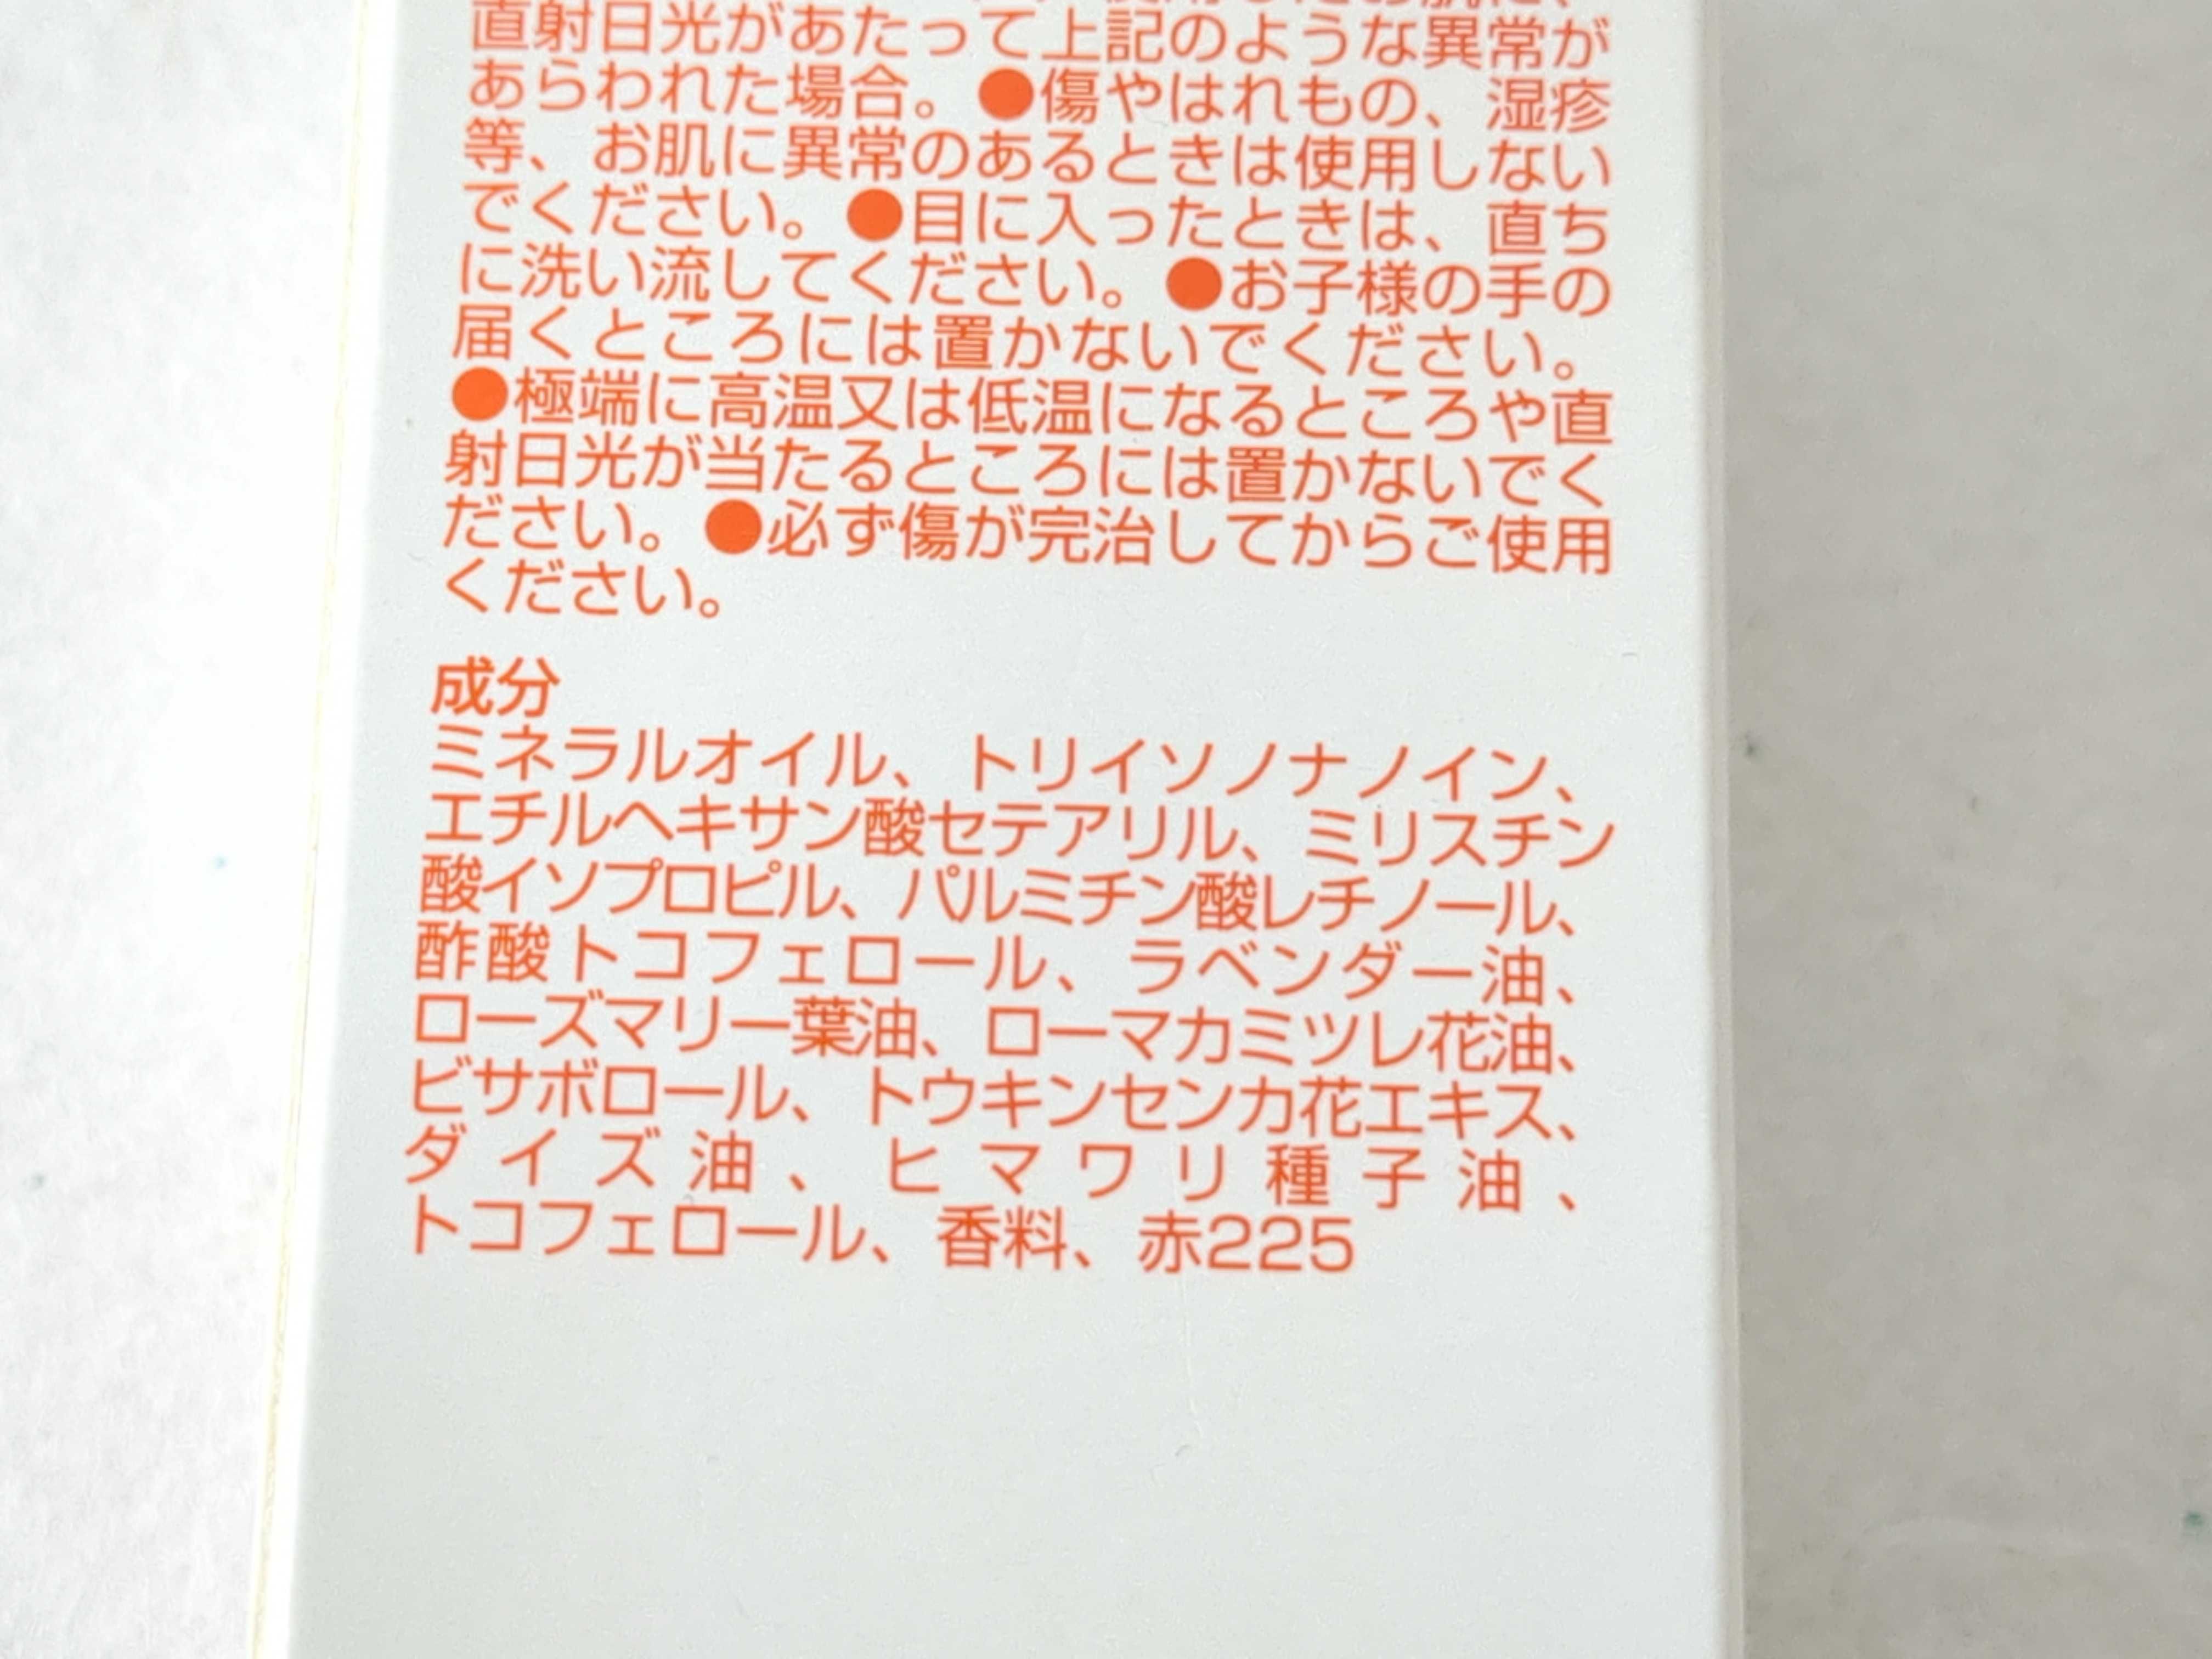 直射日光があたって上記のような異常が
あらわれた場合。●傷やはれもの、湿疹
等、お肌に異常のあるときは使用しない
でください。●目に入ったときは、直ち
に洗い流してください。●お子様の手の
届くところには置かないでください。
●極端に高温又は低温になるところや直
射日光が当たるところには置かないでく
ださい。●必ず傷が完治してからご使用
ください。
成分
ミネラルオイル、トリイソノナノイン、
エチルヘキサン酸セテアリル、ミリスチン
酸イソプロピル、パルミチン酸レチノール、
酢酸トコフェロール、ラベンダー油、
ローズマリー葉油、ローマカミツレ花油、
ビサボロール、トウキンセンカ花エキス、
ダイズ油、ヒマワリ種子油、
トコフェロール、香料、赤225